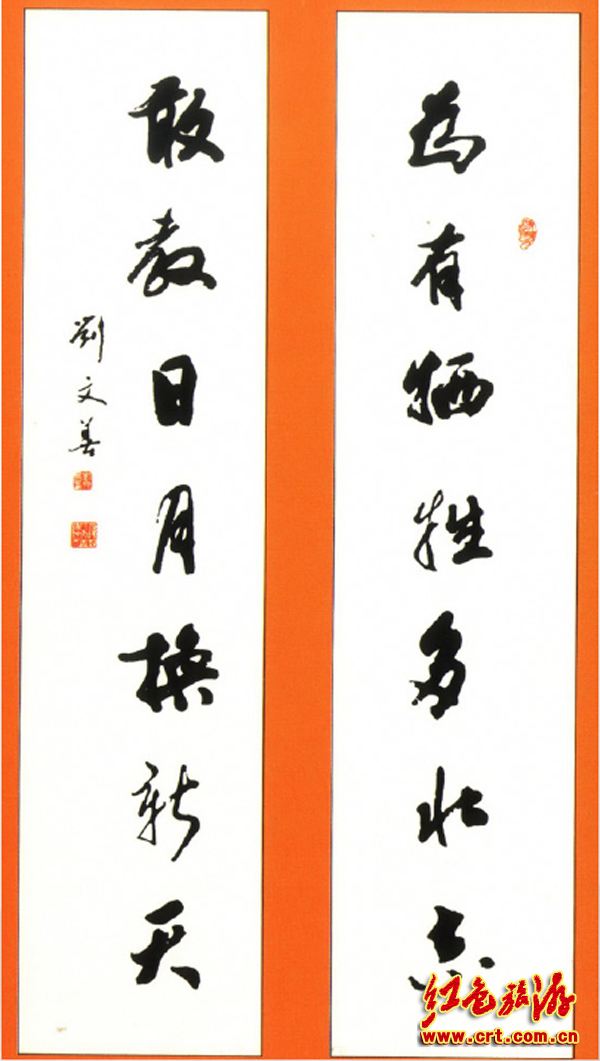 为有牺牲多壮志
敢教日月换新天
劉文善
红色旅游
www.crt.com.cn